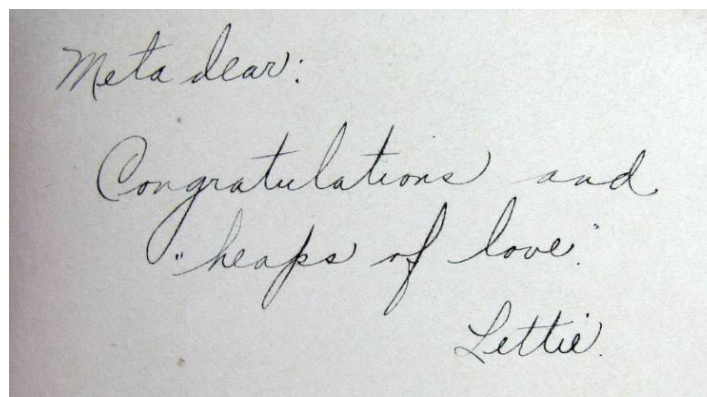 Meta dear:
Congratulations and
"heaps of love."
Lettie.